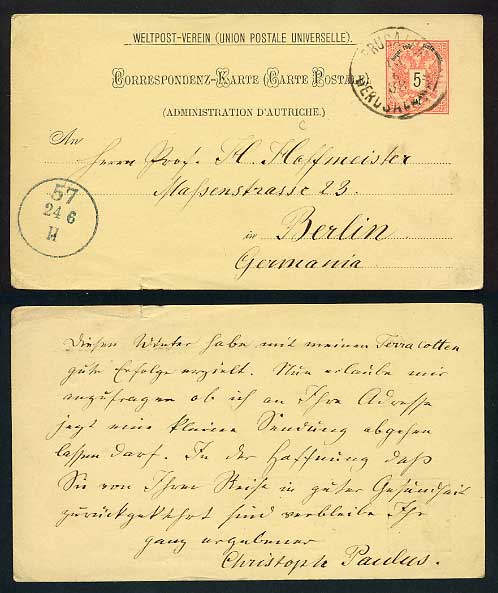 WELTPOST-VEREIN (UNION POSTALE UNIVERSELLE).
CORRESPONDENZ-KARTE (CARTE POSTALE)
(ADMINISTRATION D'AUTRICHE.)
5
JERUSALEM
An
Herrn Prof. H. Hoffmeister
Maßenstrasse 23.
in Berlin
Germania
57
24 6
Diesen Winter habe mit meinen Terracotten
gute Erfolge erzielt. Nun erlaube mir
anzufragen ob ich an Ihre Adresse
jezt eine kleine Sendung abgehen
lassen darf. In der Hoffnung daß
Sie von Ihrer Reise in guter Gesundheit
zurückgekehrt sind verbleibe Ihr
ganz ergebener
Christoph Paulus.